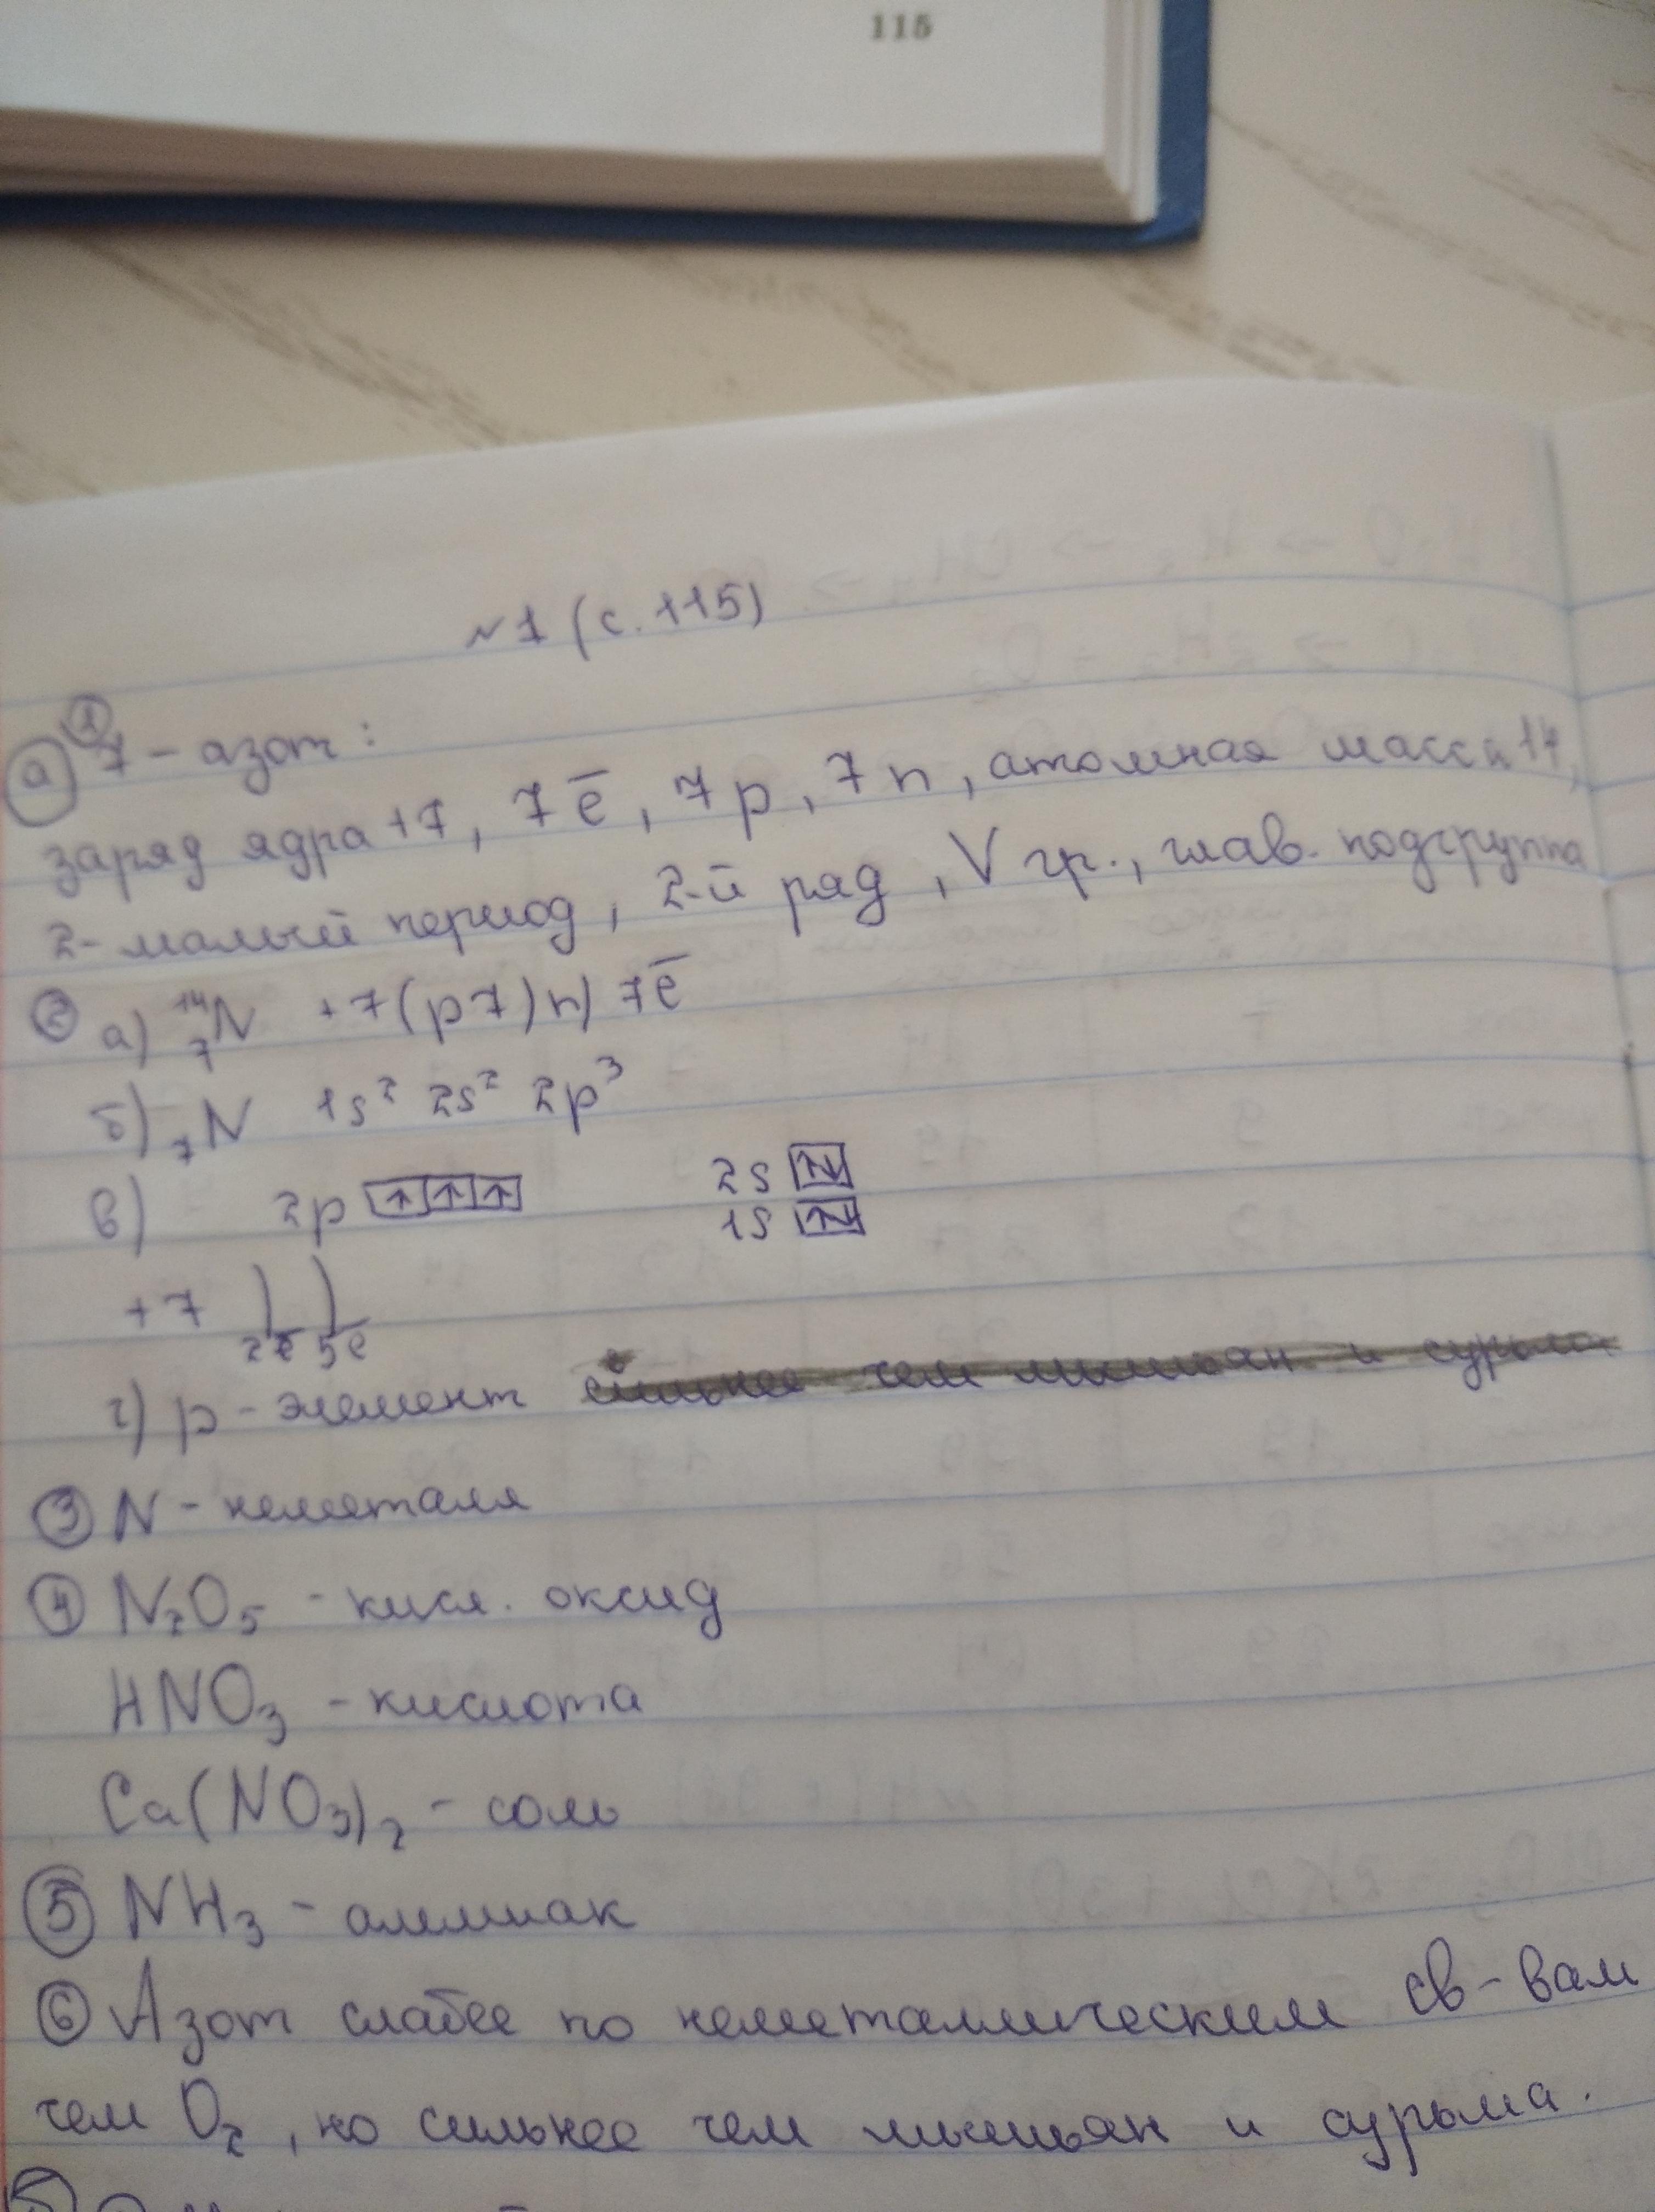 115
№1 (с. 115)
а) ① 7 - азот:
заряд ядра +7, 7e̅, 7p, 7n, атомная масса 14,
2-малый период, 2-й ряд, V гр., глав. подгруппа
② а) ¹⁴₇N +7(p7)n) 7e̅
б) ₇N 1s² 2s² 2p³
в) 2p [↑][↑][↑] 2s [↑↓]
1s [↑↓]
+7 ) )
2e̅ 5e̅
г) p - элемент сильнее чем мышьян и сурьма
③ N - неметалл
④ N₂O₅ - кисл. оксид
HNO₃ - кислота
Ca(NO₃)₂ - соль
⑤ NH₃ - аммиак
⑥ Азот слабее по неметаллическим св-вам
чем O₂, но сильнее чем мышьян и сурьма.